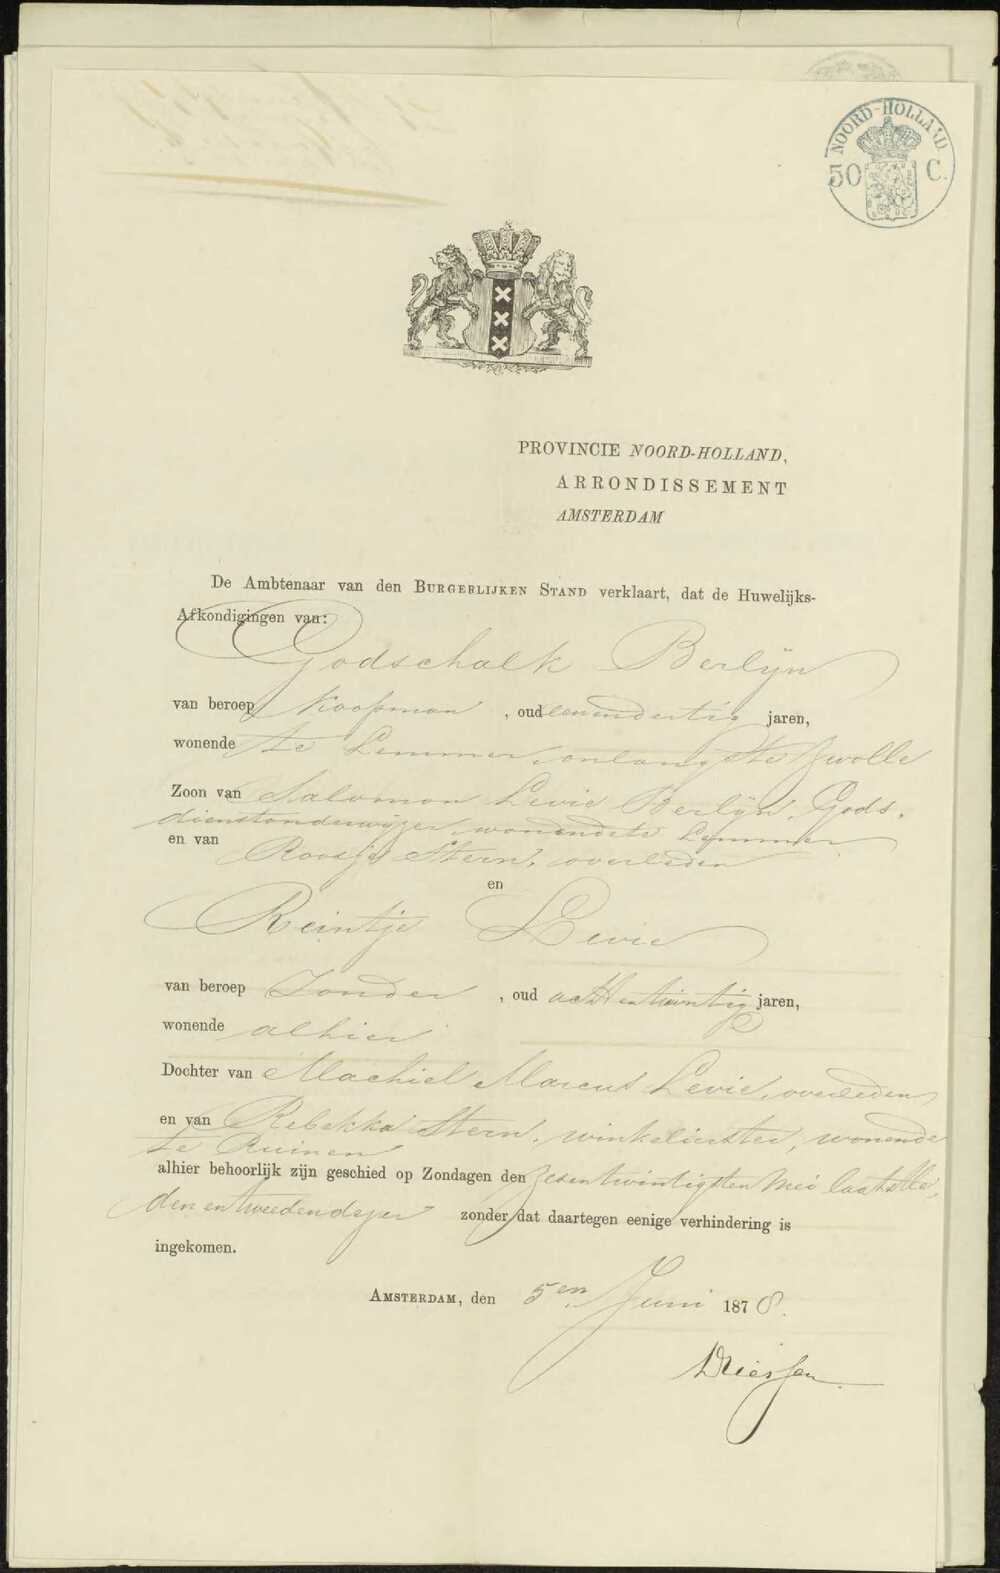 NOORD-HOLLAND.
50 C.
PROVINCIE NOORD-HOLLAND,
ARRONDISSEMENT
AMSTERDAM
De Ambtenaar van den BURGERLIJKEN STAND verklaart, dat de Huwelijks-
Afkondigingen van:
Godschalk Berlijn
van beroep Koopman, oud eenendertig jaren,
wonende te Lemmer, onlangs te Zwolle
Zoon van Salomon Levie Berlijn, Gods-
dienstonderwijzer, wonende te Lemmer
en van Roosje Stern, overleden
en
Reintje Levie
van beroep Zonder, oud achtentwintig jaren,
wonende alhier
Dochter van Machiel Marcus Levie, overleden
en van Rebekka Stern, winkelierster, wonende
te Ruinen
alhier behoorlijk zijn geschied op Zondagen den zesentwintigsten Mei laatstle-
den en tweeden dezer zonder dat daartegen eenige verhindering is
ingekomen.
AMSTERDAM, den 5en Juni 1878.